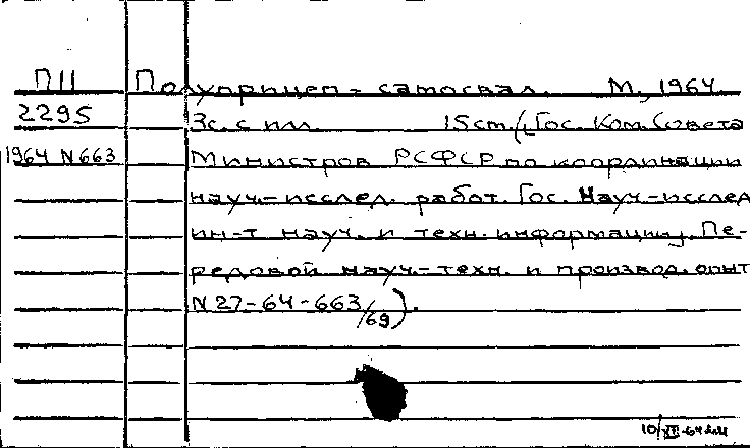 ПII Полуприцеп-самосвал. М., 1964
2295 3с. с илл. 15cm. (Гос. Ком. Совета
1964 N663 Министров РСФСР по координации
науч.-исслед. работ. Гос. Науч-исслед
ин-т науч. и техн. информации, Пе-
редовой науч.-техн. и производ. опыт
N27-64-663/69).